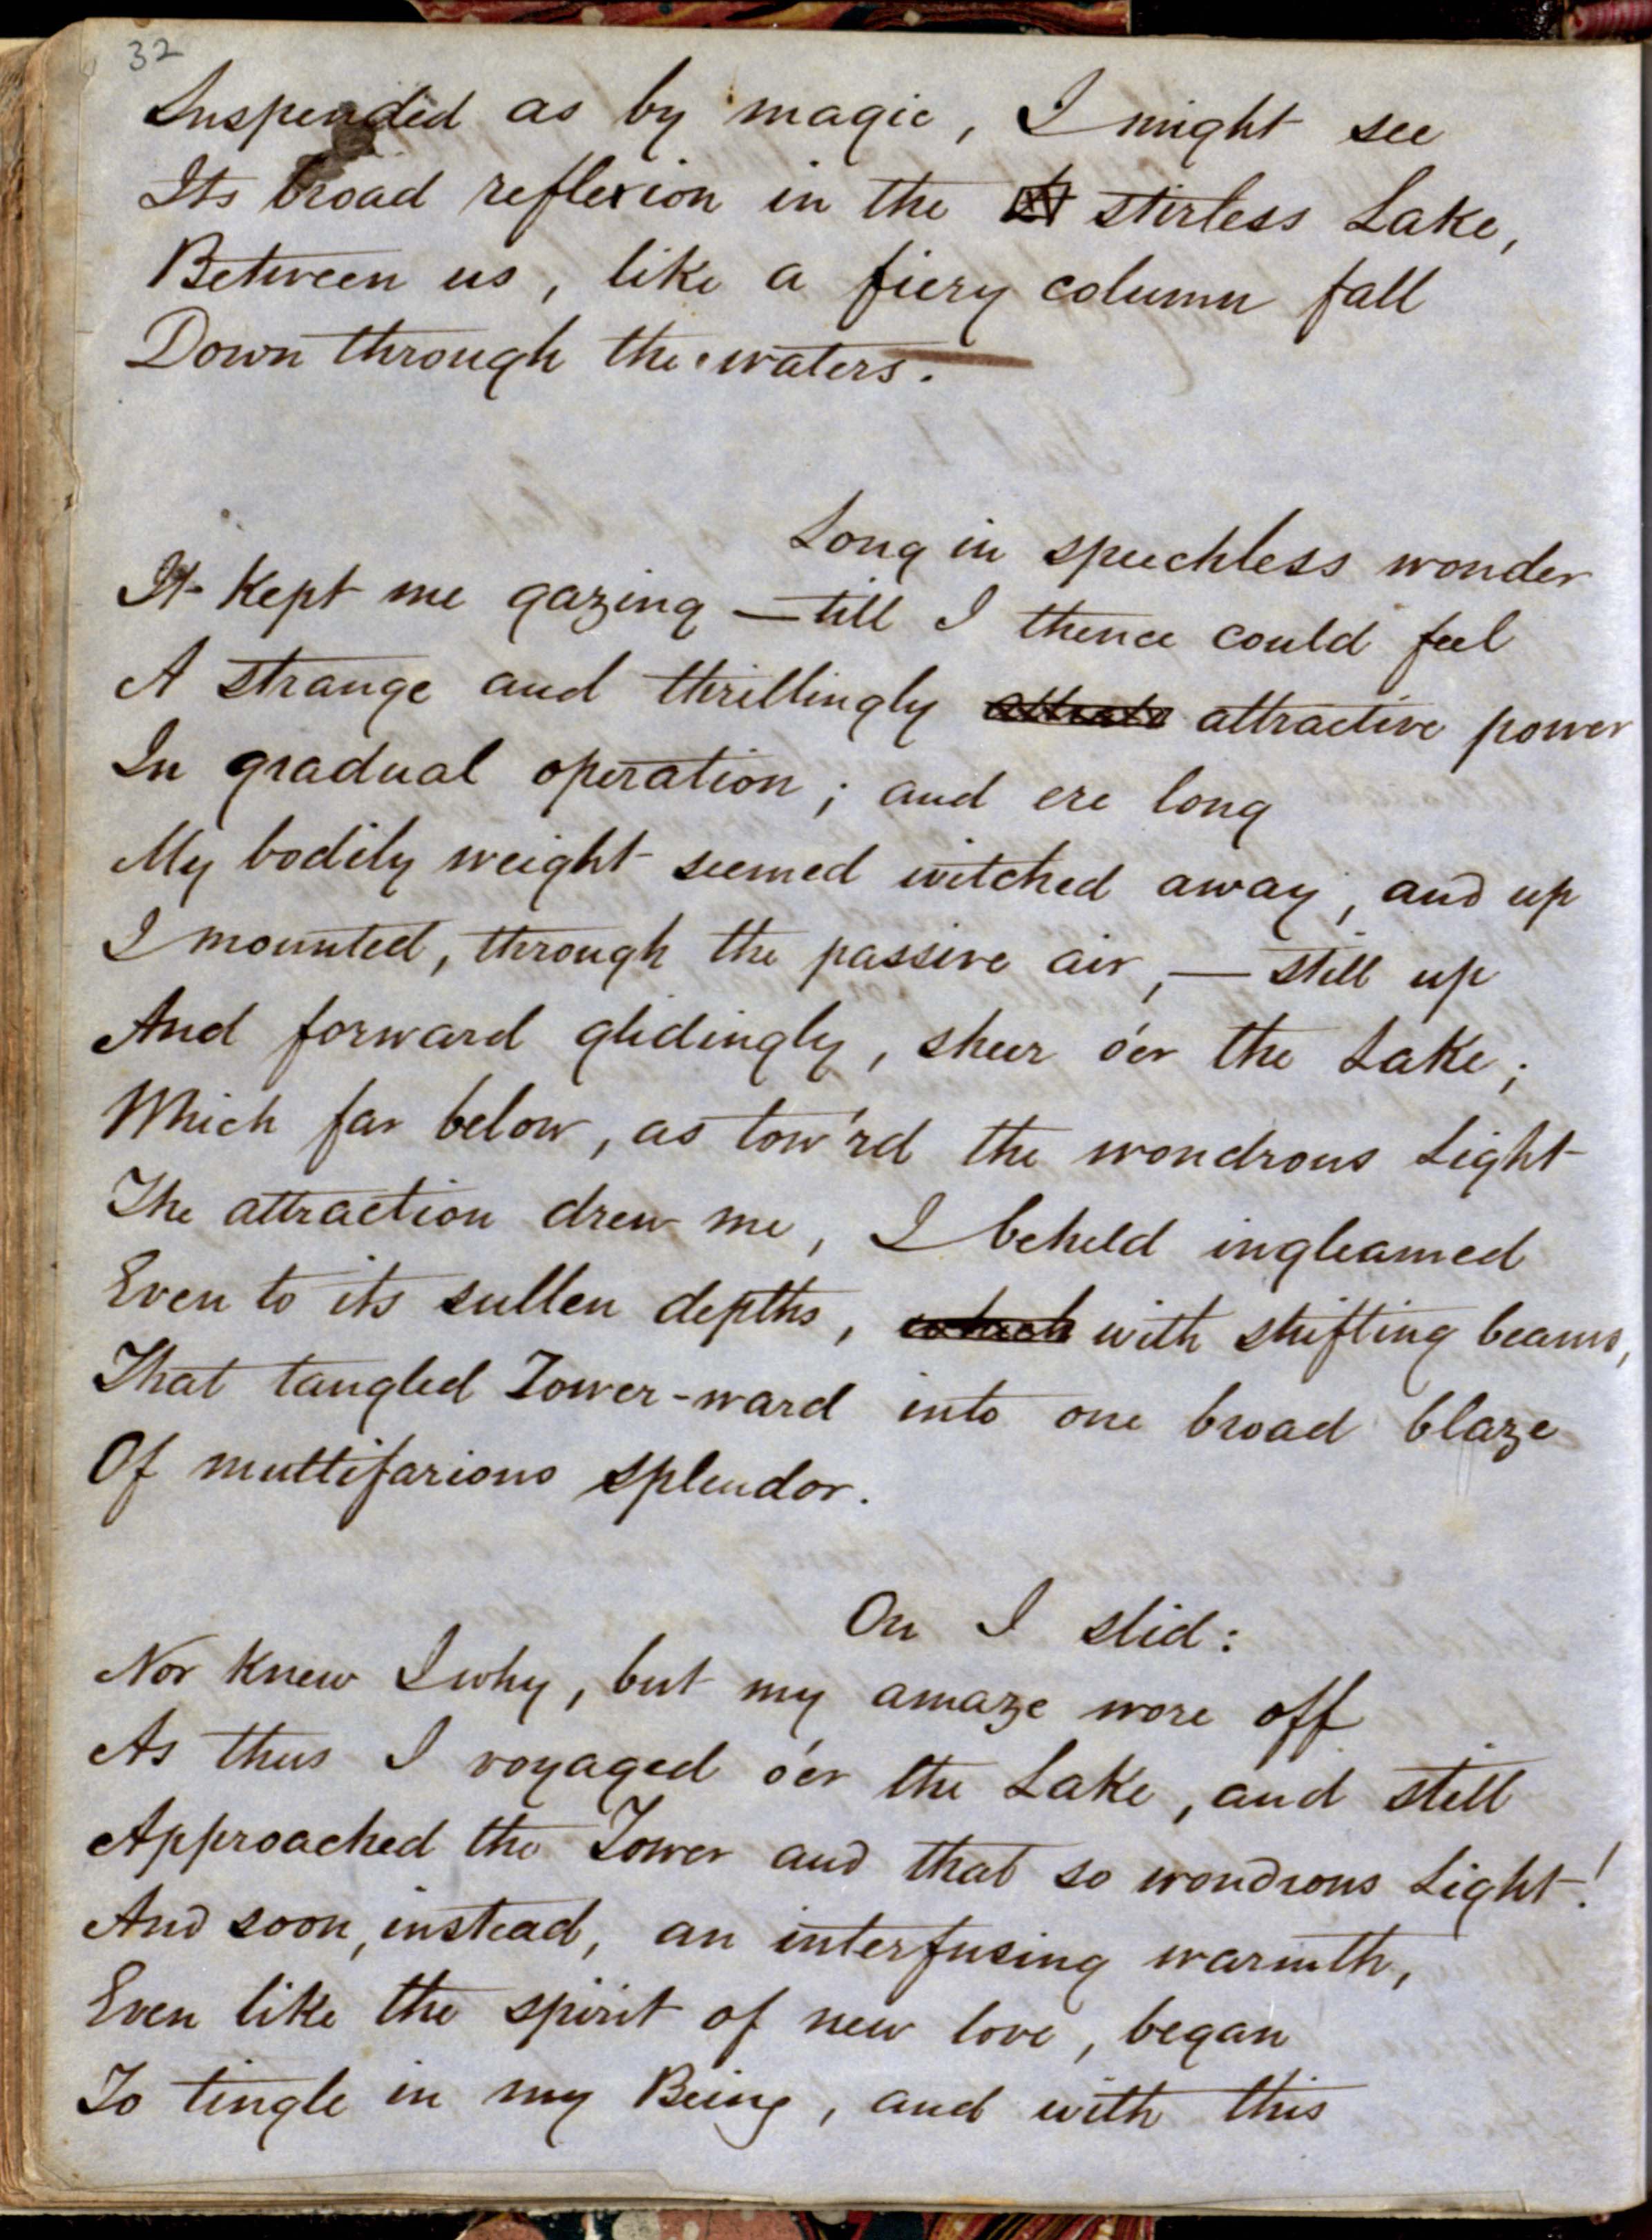 32
Suspended as by magic, I might see
Its broad reflexion in the stirless Lake,
Between us, like a fiery column fall
Down through the waters.
Long in speechless wonder
It kept me gazing — till I thence could feel
A strange and thrillingly attractive power
In gradual operation; and ere long
My bodily weight seemed witched away, and up
I mounted, through the passive air, — still up
And forward glidingly, sheer o'er the Lake;
Which far below, as tow'rd the wondrous Light
The attraction drew me, I beheld ingleamed
Even to its sullen depths, which with shifting beams,
That tangled Tower-ward into one broad blaze
Of multifarious splendor.
On I slid:
Nor knew I why, but my amaze wore off
As thus I voyaged o'er the Lake, and still
Approached the Tower and that so wondrous Light!
And soon, instead, an interfusing warmth,
Even like the spirit of new love, began
To tingle in my Being, and with this